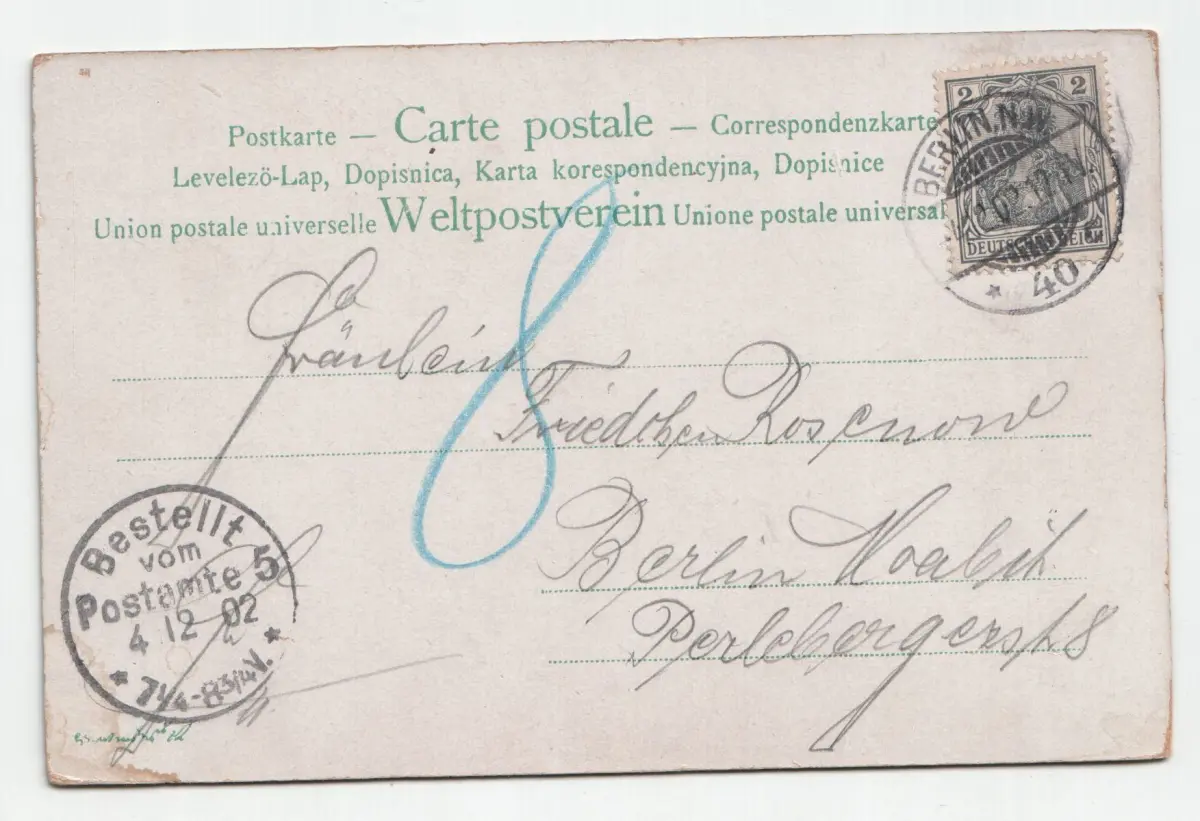 Postkarte — Carte postale — Correspondenzkarte
Levelező-Lap, Dopisnica, Karta korespondencyjna, Dopisnice
Union postale universelle Weltpostverein Unione postale universal
2 2
DEUTSCHES REICH
BERLIN, N.W.
* 40
8
Fräulein
Friedchen Rosenow
Berlin Moabit
Perlebergerst 8
Bestellt
vom
Postamte 5
4 12 02
* 7 1/4-8 3/4 V. *